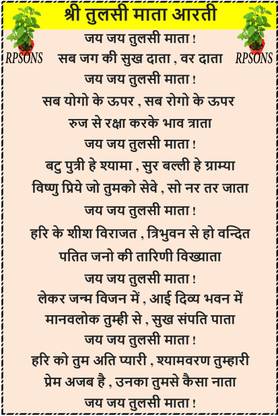 श्री तुलसी माता आरती
RPSONS
RPSONS
जय जय तुलसी माता !
सब जग की सुख दाता , वर दाता
जय जय तुलसी माता !
सब योगो के ऊपर , सब रोगो के ऊपर
रुज से रक्षा करके भाव त्राता
जय जय तुलसी माता !
बटु पुत्री हे श्यामा , सुर बल्ली हे ग्राम्या
विष्णु प्रिये जो तुमको सेवे , सो नर तर जाता
जय जय तुलसी माता !
हरि के शीश विराजत , त्रिभुवन से हो वन्दित
पतित जनो की तारिणी विख्याता
जय जय तुलसी माता !
लेकर जन्म विजन में , आई दिव्य भवन में
मानवलोक तुम्ही से , सुख संपति पाता
जय जय तुलसी माता !
हरि को तुम अति प्यारी , श्यामवरण तुम्हारी
प्रेम अजब है , उनका तुमसे कैसा नाता
जय जय तुलसी माता !